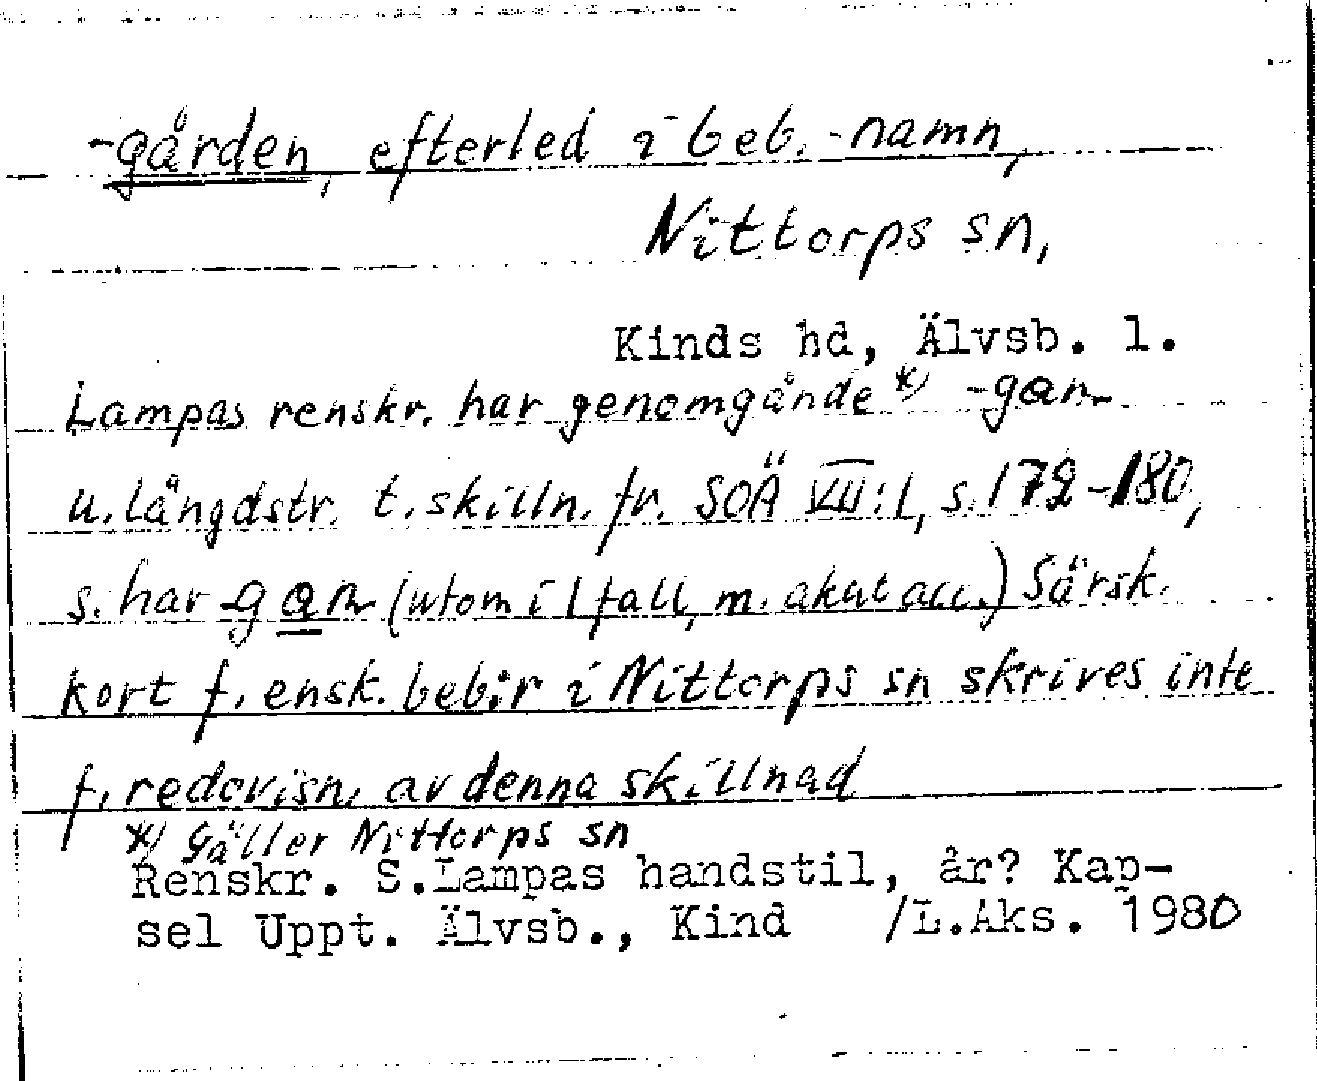 -gården, efterled i beb.-namn,
Nittorps sn,
Kinds hd, Älvsb. l.
Lampas renskr. har genomgående *) -gan
u. längdstr. t. skilln. fr. SOÄ VII:1, s. 172-180,
s. har -gan (utom i 1 fall, m. akut acc.) Särsk.
kort f. ensk. beb:r i Nittorps sn skrives inte
f. redovisn. av denna skillnad
*) Gäller Nittorps sn
Renskr. S.Lampas handstil, år? Kap-
sel Uppt. Älvsb., Kind /L.Aks. 1980